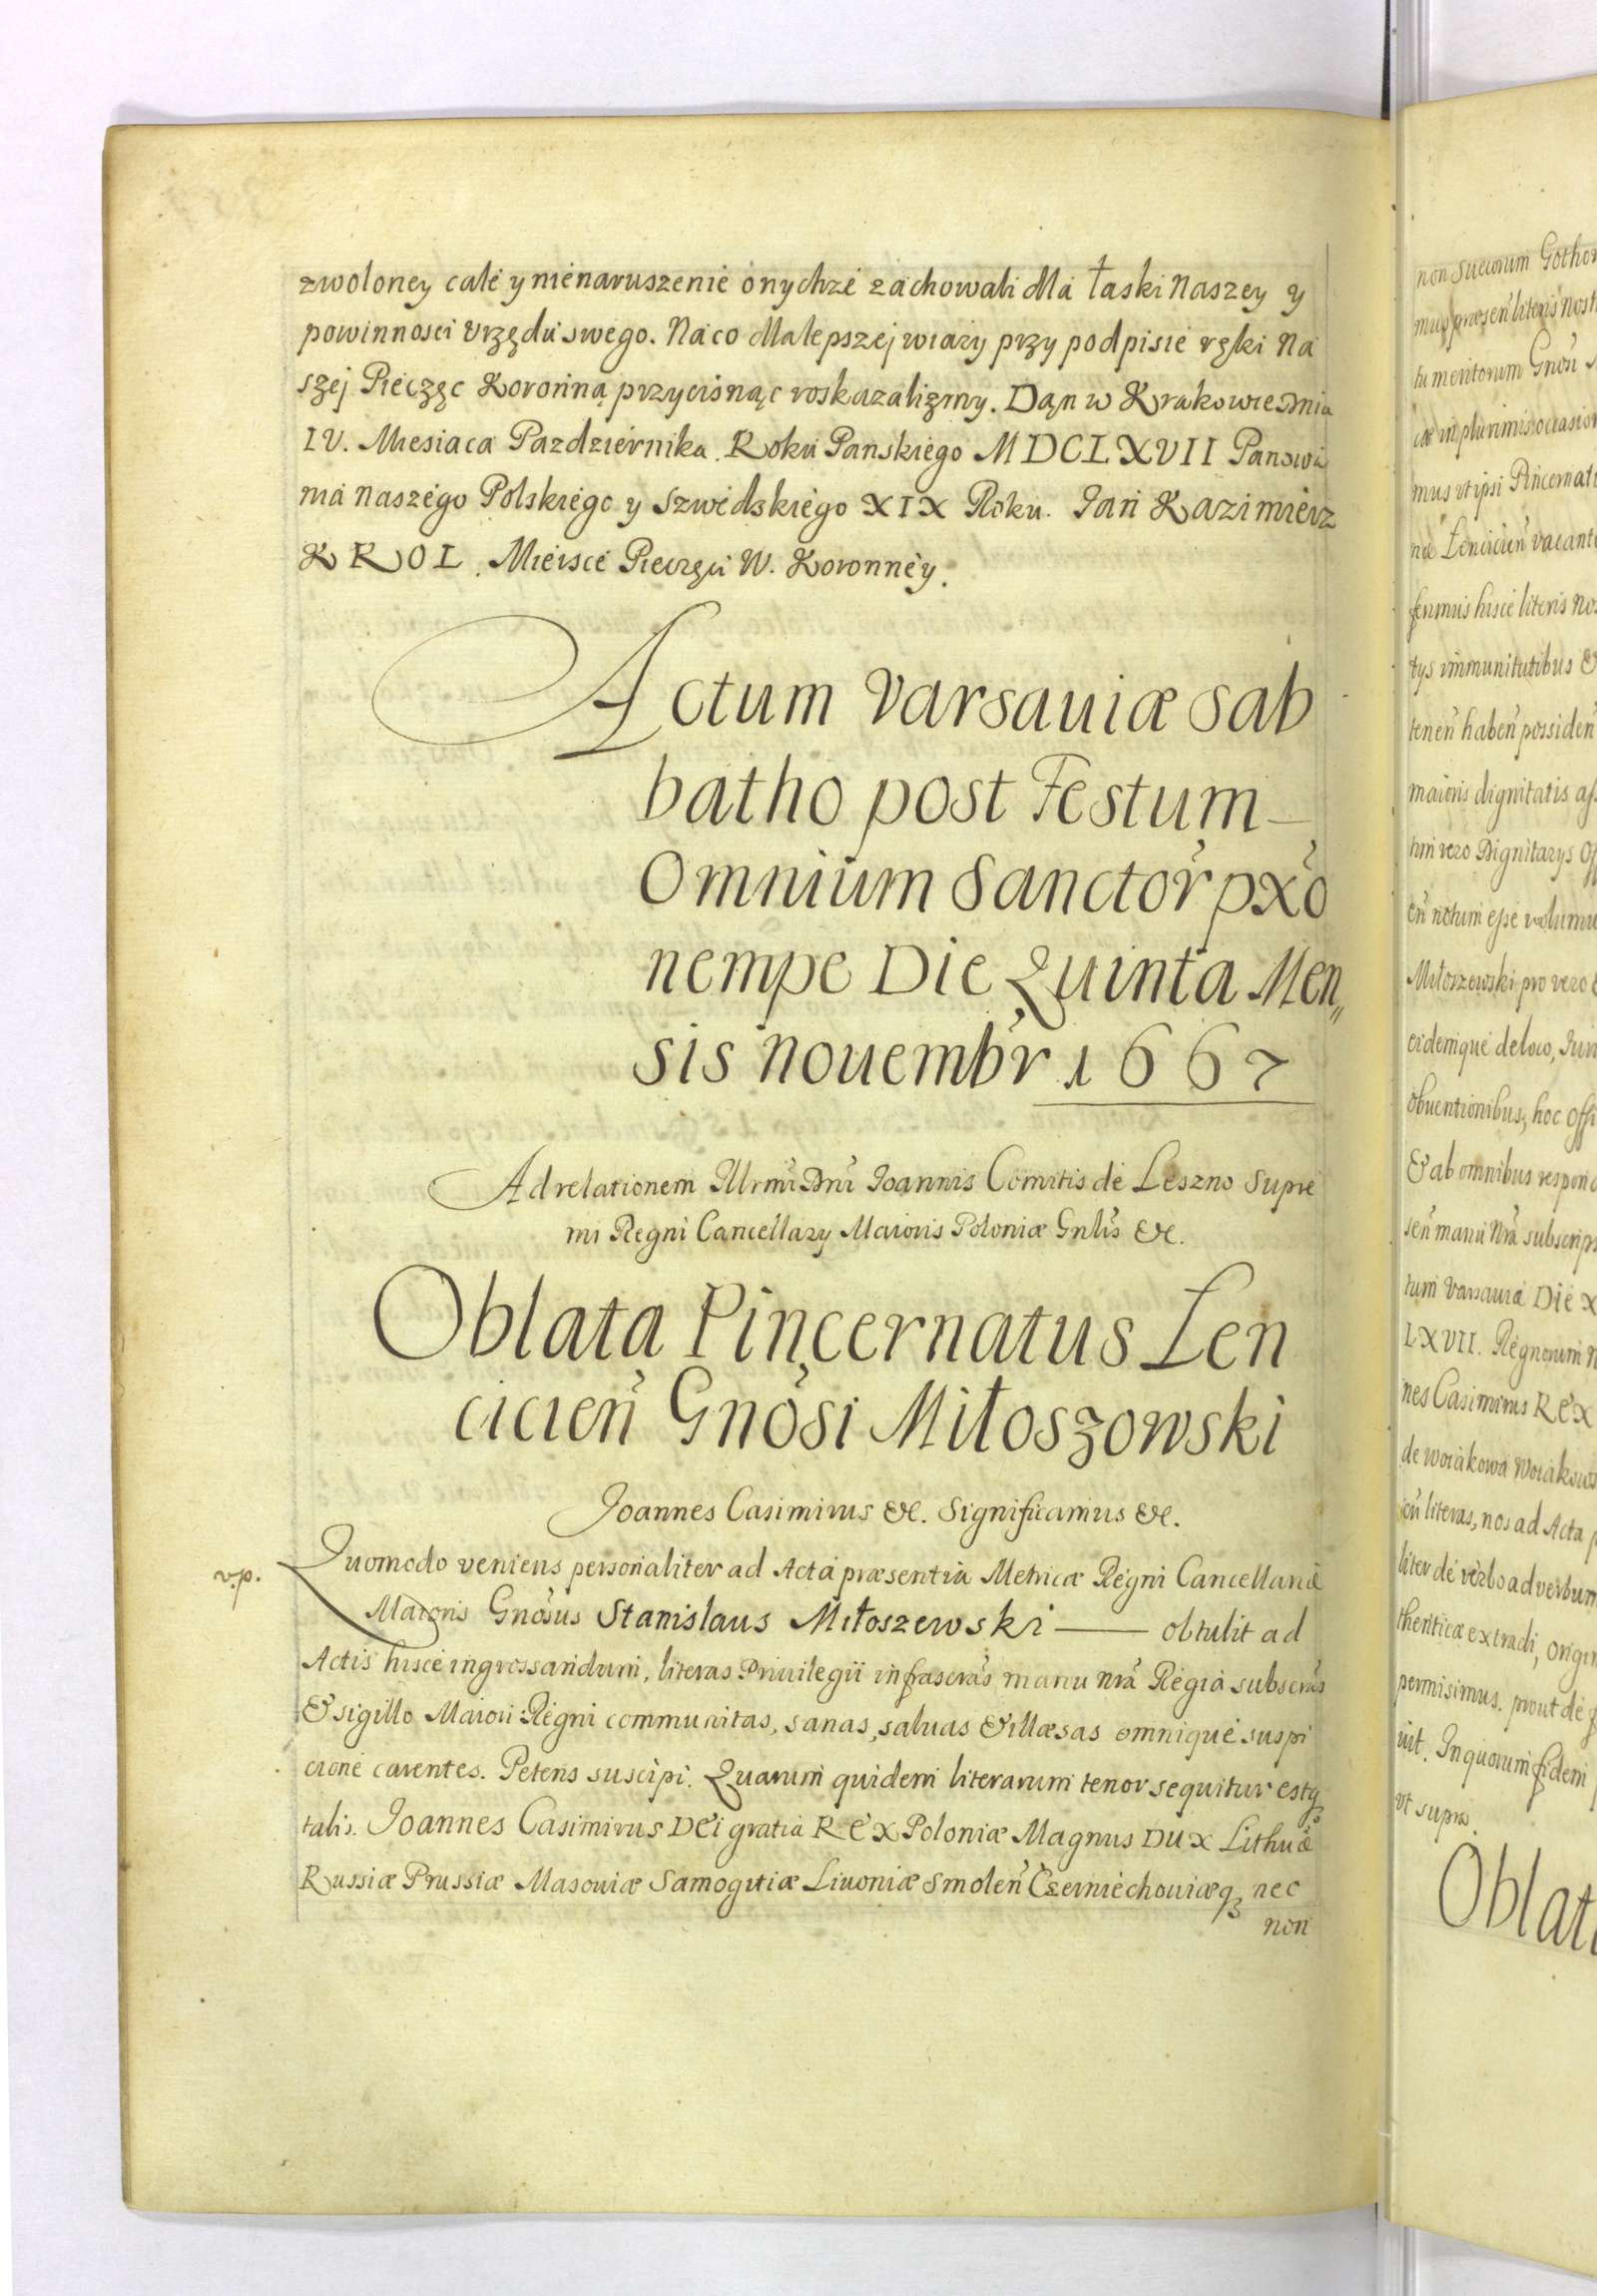 zwoloney cale y nienaruszenie onychze zachowali dla łaski Naszey y
powinnosci Vrzędu swego. Na co dla lepszej wiary przy podpisie ręki Na
szej Pieczęc Koronną przycisnąc roskazalizmy. Dąn w Krakowie Dnia
IV. Miesiaca Pazdziernika. Roku Panskiego MDCLXVII Panowa
nia Naszego Polskiego y Szwedskiego XIX Roku. Jan Kazimierz
KROL. Mieisce Pieczęci W. Koronney.
Actum Varsauiæ Sab
batho post Festum
Omnium Sanctor̃ pxõ
nempe Die Quinta Men„
sis Nouembr̃ 1667
Ad relationem Illrmi Dni Joannis Comitis de Leszno Supre
mi Regni Cancellarÿ Maioris Poloniæ Gnlis &c.
Oblata Pincernatus Len
cicien̄ Gnosi Miłoszowski
Joannes Casimirus &c. Significamus &c.
v.p.
Quomodo veniens personaliter ad Acta præsentia Metricæ Regni Cancellariæ
Maioris Gnosus Stanislaus Miłoszewski — obtulit ad
Actis hisce ingrossandum, literas Priuilegii infrascras manu nra Regia subscras
& sigillo Maiori Regni communitas, sanas, saluas & illæsas omnique suspi
cione carentes. Petens suscipi. Quarum quidem literarum tenor sequitur estq3
talis. Joannes Casimirus Dei gratia REX Poloniæ Magnus DUX Lithuæ
Russiæ Prussiæ Masouiæ Samogitiæ Liuoniæ Smolen̄ Czerniechouiæq3 nec
non
non Suecorum Gothor
mus præsen̄ literis nost
tu meritorum Gnosi
cæ in plurimis occasion
mus vt ipsi Pincernat
næ Lencicien̄ vacant
ferimus hisce literis nos
tÿs immunitatibus &
tenen̄ haben̄ possiden̄
maioris dignitatis as
tum vero Dignitarÿs Of
en̄ notum esse volumu
Miłoszewski pro vero &
eidemque de loco,
obuentionibus, hoc Offi
& ab omnibus respond
sen̄ manu Nra subscrip
tum Varsauia Die X
LXVII. Regnorum N
nes Casimirus REX
de Woiakowa Woiakows
cen̄ literas, nos ad Acta p
liter de verbo ad verbum
thenticæ extradi, origin
permisimus. prout de
uit. In quorum fidem
vt supra.
Oblat